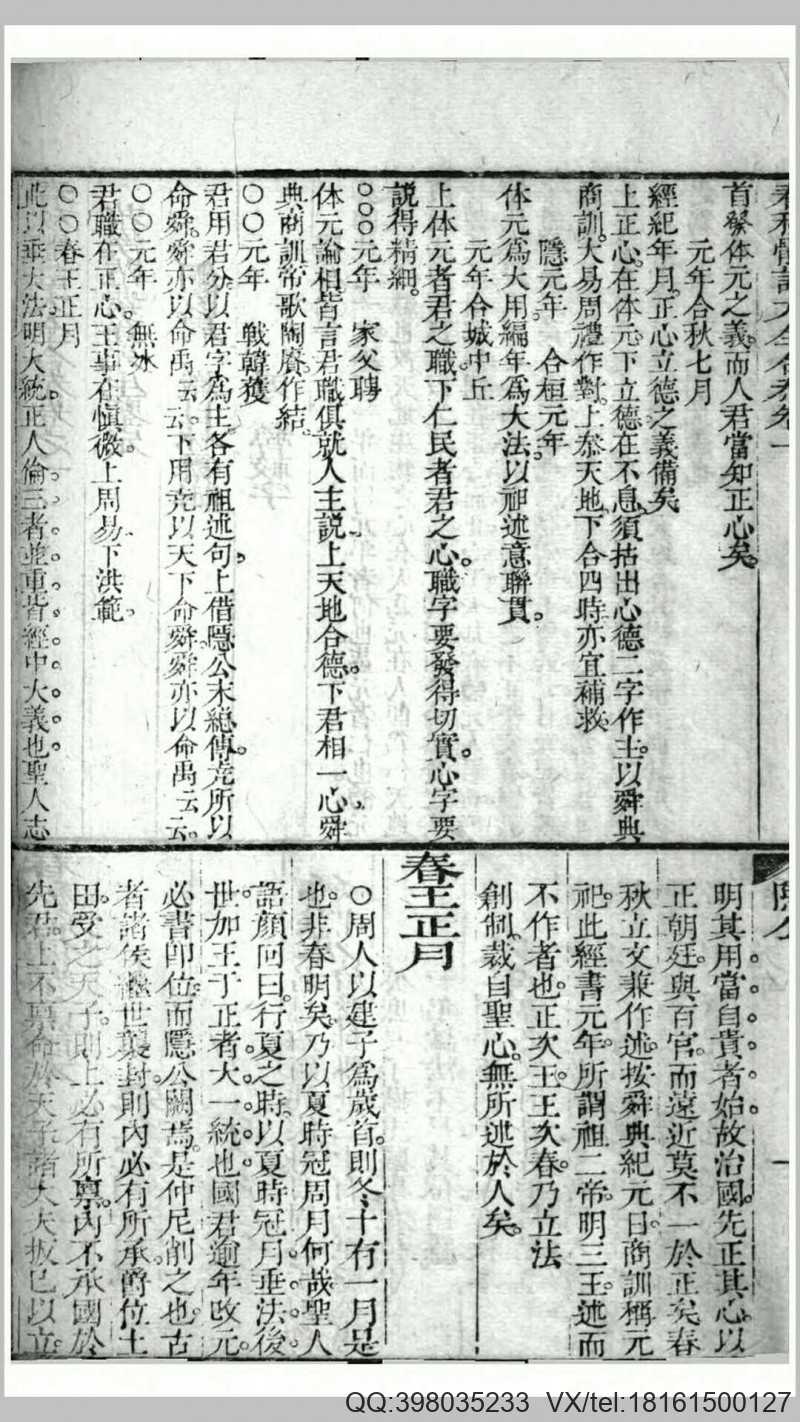 首發体元之義而人君當知正心矣。
元年合秋七月
經紀年月。正心立德之義備矣
上正心。在体元。下立德在不息。須拈出心德二字作主。以舜典
商訓。大易周禮作對。上參天地。下合四時。亦宜補救。
隱元年　合桓元年
体元爲大用。編年爲大法。以祖述意聯貫。
元年合城中丘
上体元者君之職。下仁民者君之心。職字要發得切實。心字要
說得精細。
○○○元年　家父聘
体元論相皆言君職俱就人主説。上天地合德。下君相一心。舜
典商訓帝歌陶賡作結。
○○元年　戰韓獲
君用君分。以君字為主。各有祖述句。上借隱公末總傳。堯所以
命舜。舜亦以命禹云云。下用堯以天下命舜。舜亦以命禹云云。
○○元年　無冰
君職在正心。王事在愼微。上周易。下洪範。
○○春王正月
此以垂大法。明大統。正人倫。三者並重。皆經中大義也。聖人志
明其用當自貴者始。故治國。先正其心。以
正朝廷。與百官。而遠近莫不一於正矣。春
秋立文兼作述。按舜典紀元日。商訓稱元
祀。此經書元年。所謂祖二帝。明三王。述而
不作者也。正次王。王次春。乃立法
創制。裁自聖心。無所述於人矣。
春王正月
○周人以建子爲歲首。則冬十有一月是
也。非春明矣。乃以夏時冠周月何哉。聖人
語顏回曰。行夏之時。以夏時冠月。垂法後
世。加王于正者。大一統也。國君逾年改元。
必書卽位。而隱公闕焉。是仲尼削之也。古
者諸侯繼世襲封。則內必有所承。爵位土
田。受之天子。則上必有所稟。內不承國於
先君。上不稟命於天子。諸大夫扳已以立。
QQ:398035233 VX/tel:18161500127